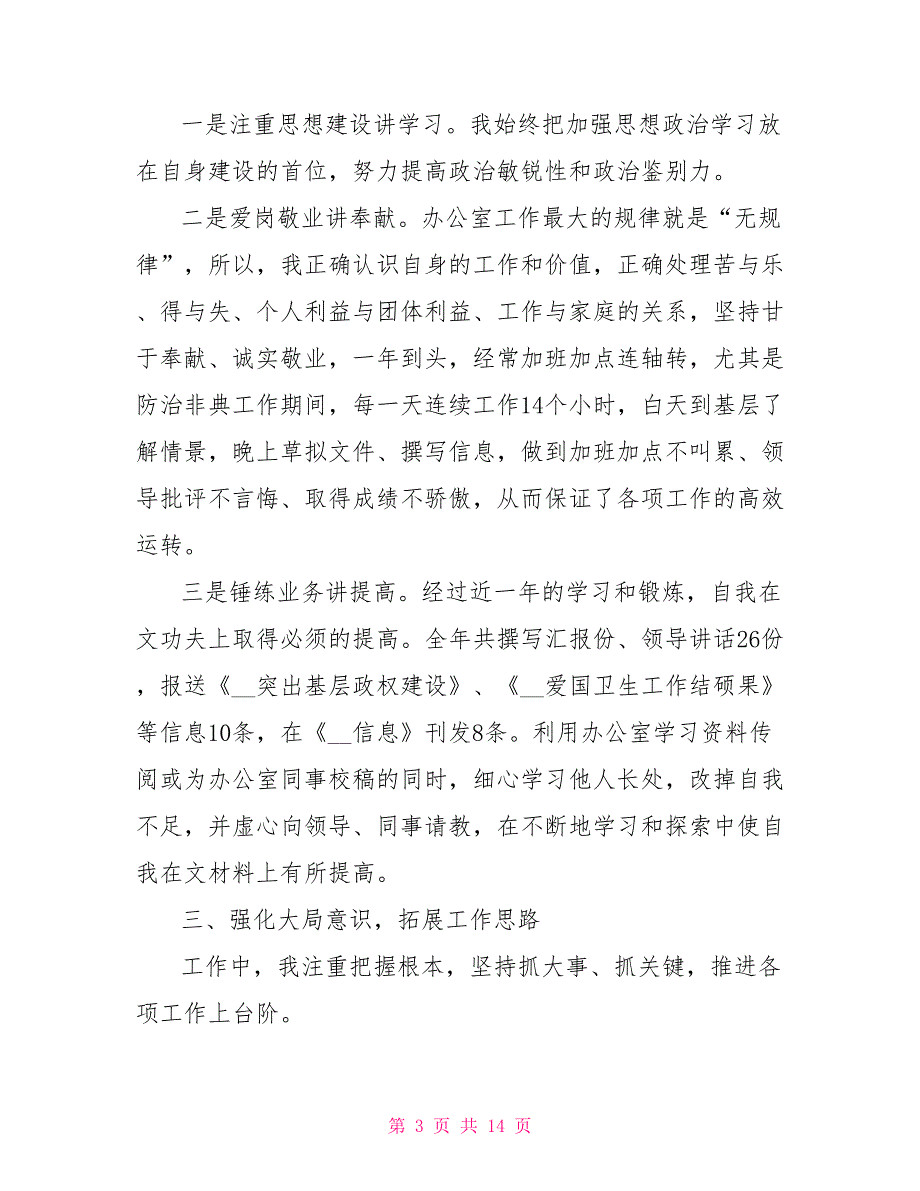 一是注重思想建设讲学习。我始终把加强思想政治学习放
在自身建设的首位，努力提高政治敏锐性和政治鉴别力。
二是爱岗敬业讲奉献。办公室工作最大的规律就是“无规
律”，所以，我正确认识自身的工作和价值，正确处理苦与乐
、得与失、个人利益与团体利益、工作与家庭的关系，坚持甘
于奉献、诚实敬业，一年到头，经常加班加点连轴转，尤其是
防治非典工作期间，每一天连续工作14个小时，白天到基层了
解情景，晚上草拟文件、撰写信息，做到加班加点不叫累、领
导批评不言悔、取得成绩不骄傲，从而保证了各项工作的高效
运转。
三是锤练业务讲提高。经过近一年的学习和锻炼，自我在
文功夫上取得必须的提高。全年共撰写汇报份、领导讲话26份
，报送《__突出基层政权建设》、《__爱国卫生工作结硕果》
等信息10条，在《__信息》刊发8条。利用办公室学习资料传
阅或为办公室同事校稿的同时，细心学习他人长处，改掉自我
不足，并虚心向领导、同事请教，在不断地学习和探索中使自
我在文材料上有所提高。
三、强化大局意识，拓展工作思路
工作中，我注重把握根本，坚持抓大事、抓关键，推进各
项工作上台阶。
第 3 页 共 14 页